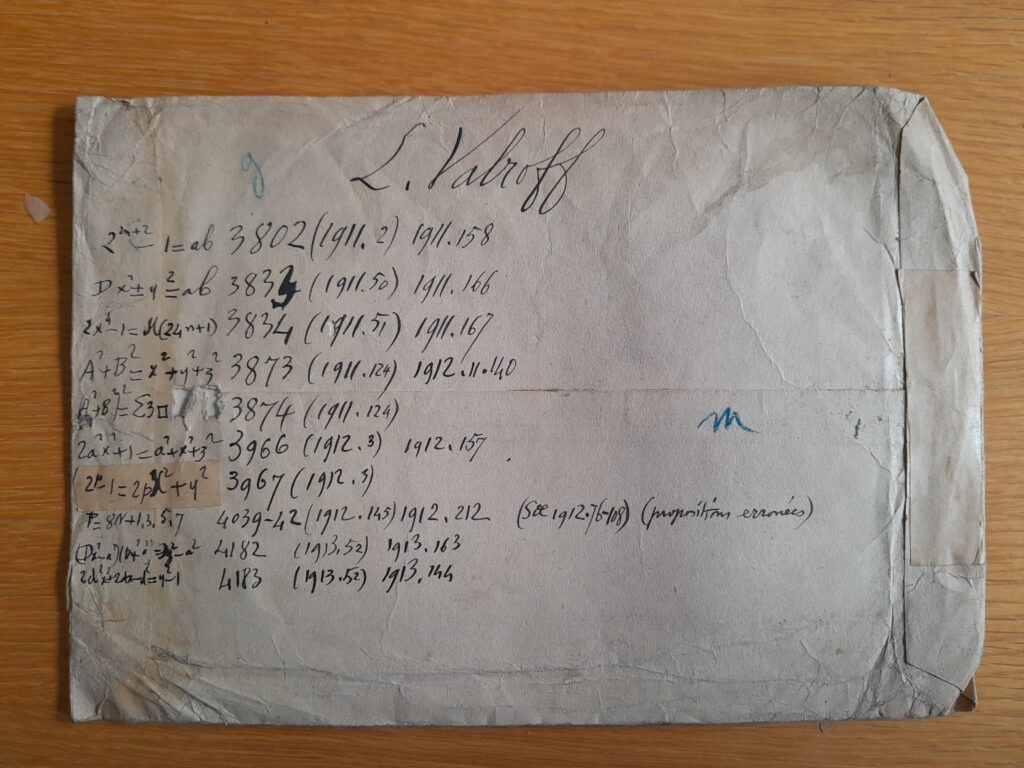 g
L. Valroff
2²ⁿ⁺² - 1 = ab 3802 (1911.2) 1911.158
Dx² ± y² = ab 3832 (1911.50) 1911.166
2x⁴ - 1 = M(24n+1) 3834 (1911.51) 1911.167
A² + B² = x² + y² + z² 3873 (1911.124) 1912.11.140
= Σ3□ 3874 (1911.124)
m
3966 (1912.3) 1912.157
2ᵖ - 1 = 2pX² + y² 3967 (1912.3)
P = 8N+1,3,5,7 4039-42 (1912.145) 1912.212 (See 1912.76-108) (propositions erronées)
4182 (1913.52) 1913.163
4183 (1913.52) 1913.144